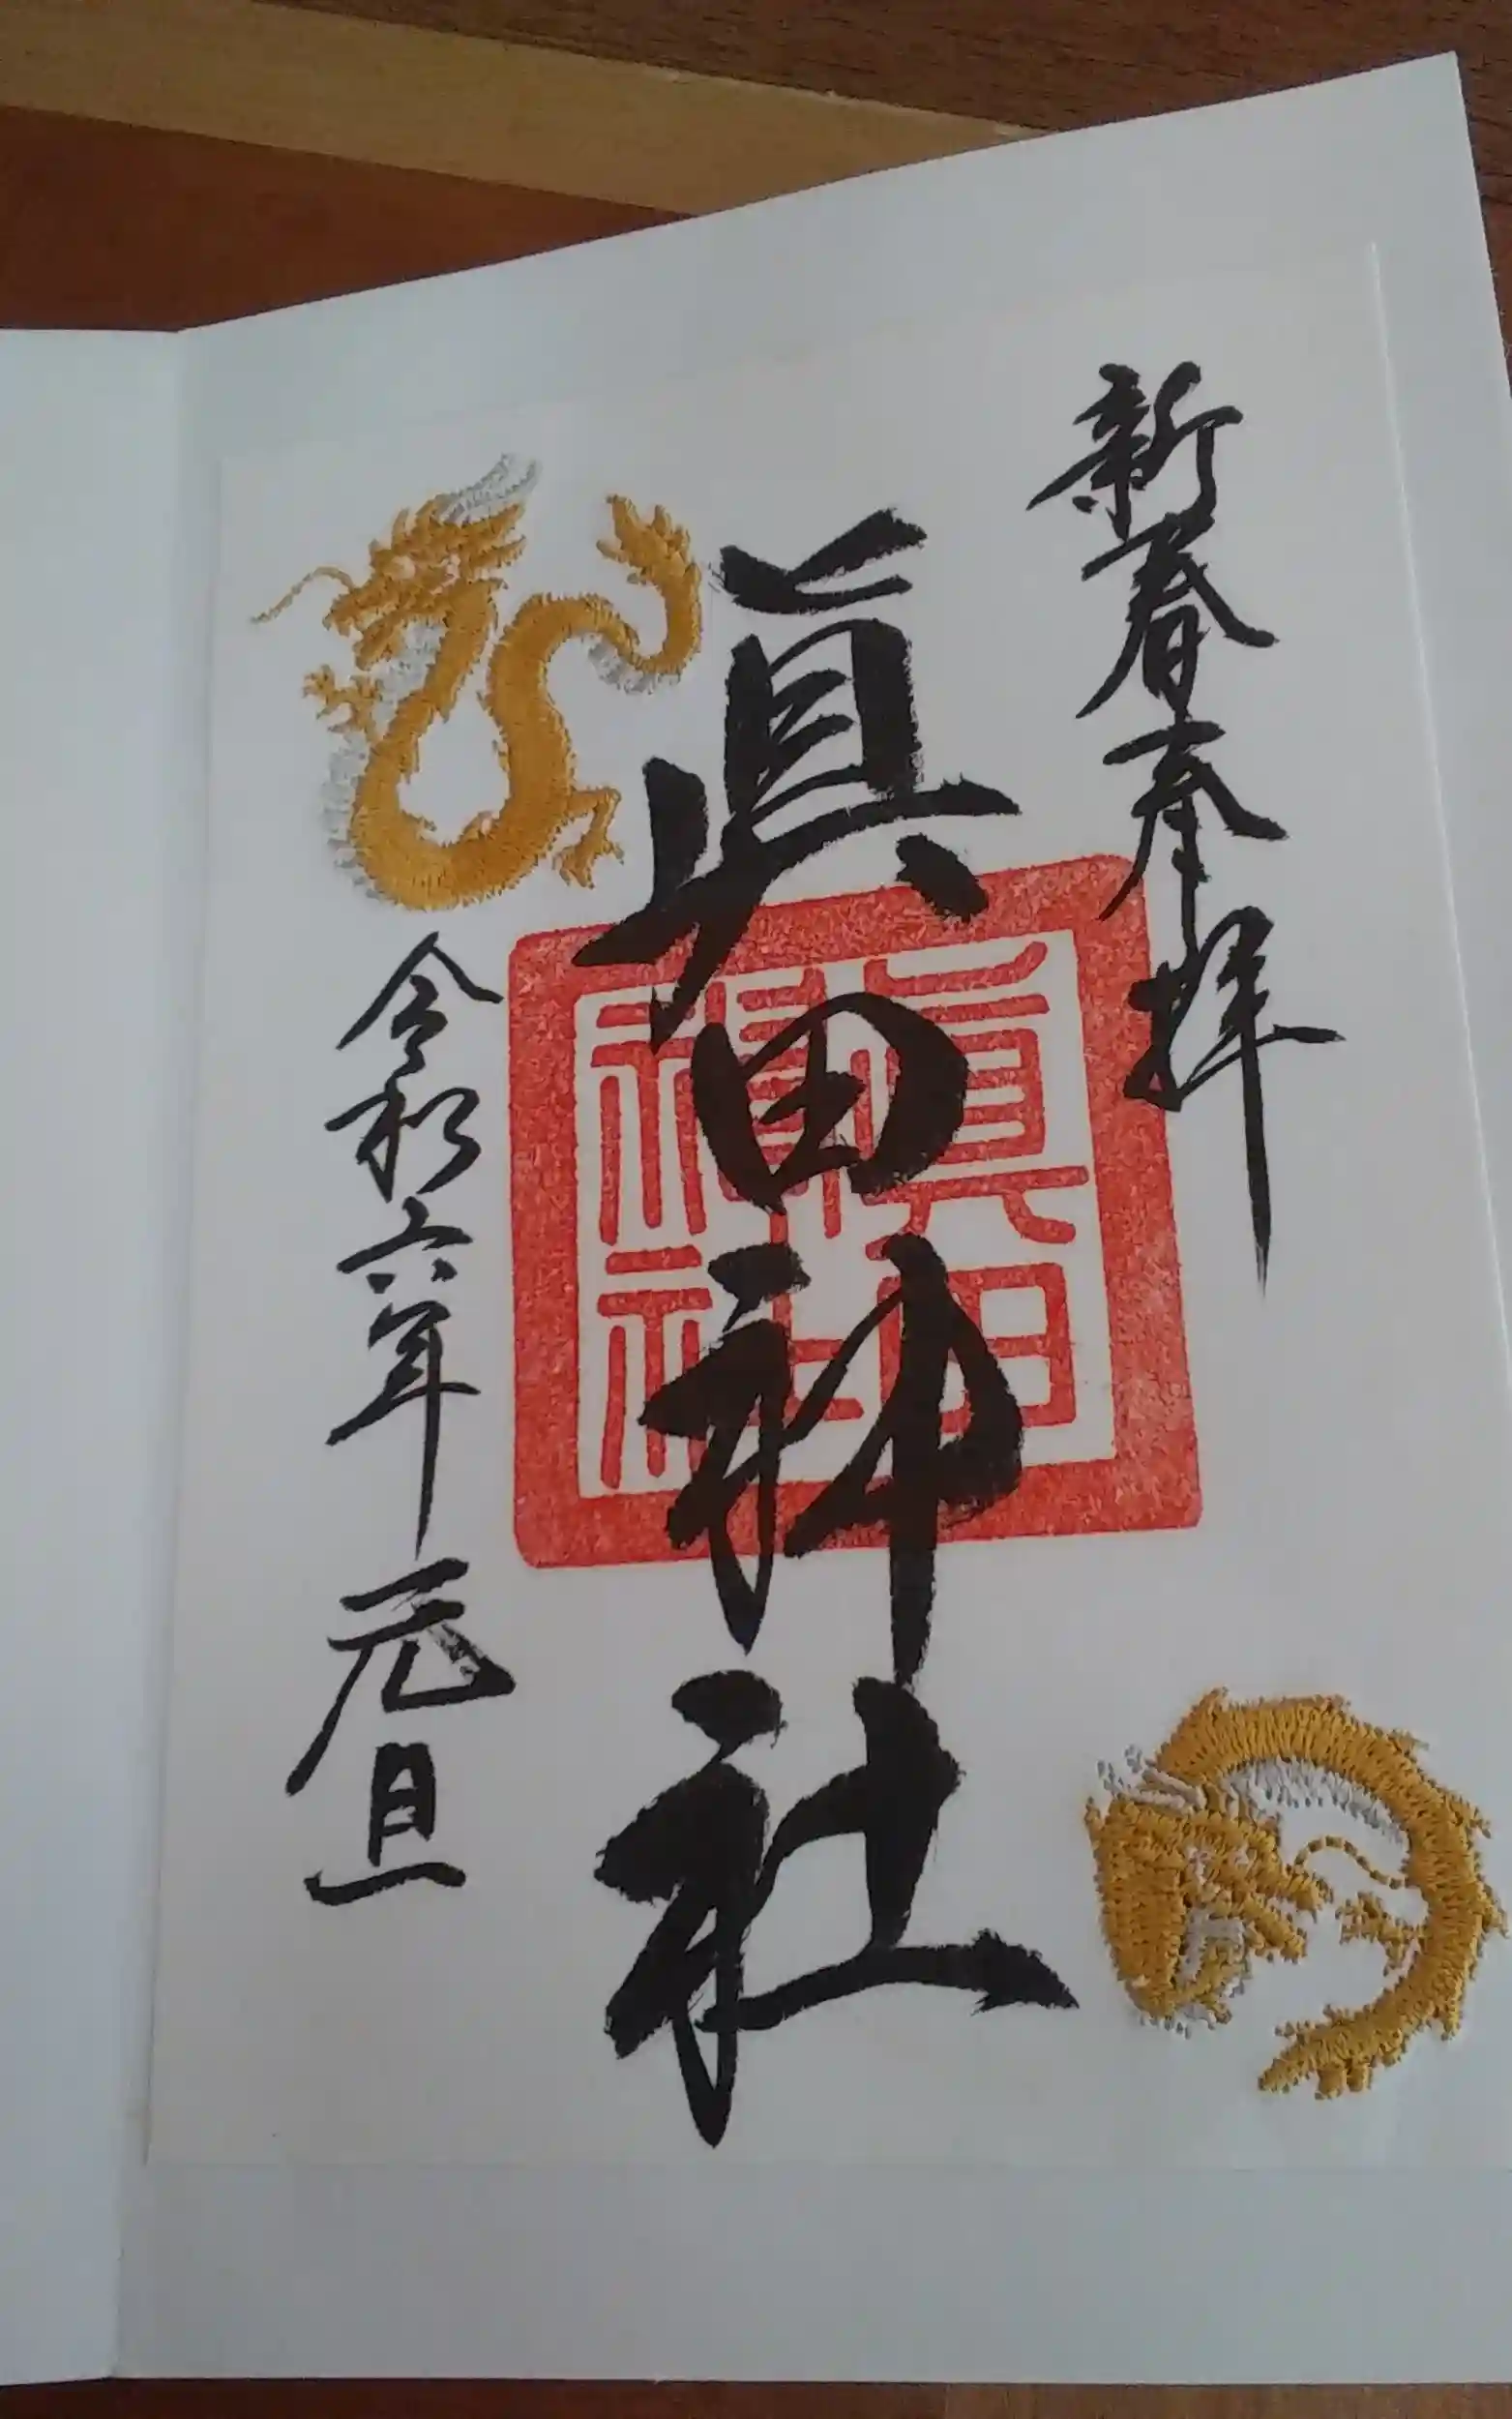 新春奉拝
眞田神社
眞田神社
令和六年元旦